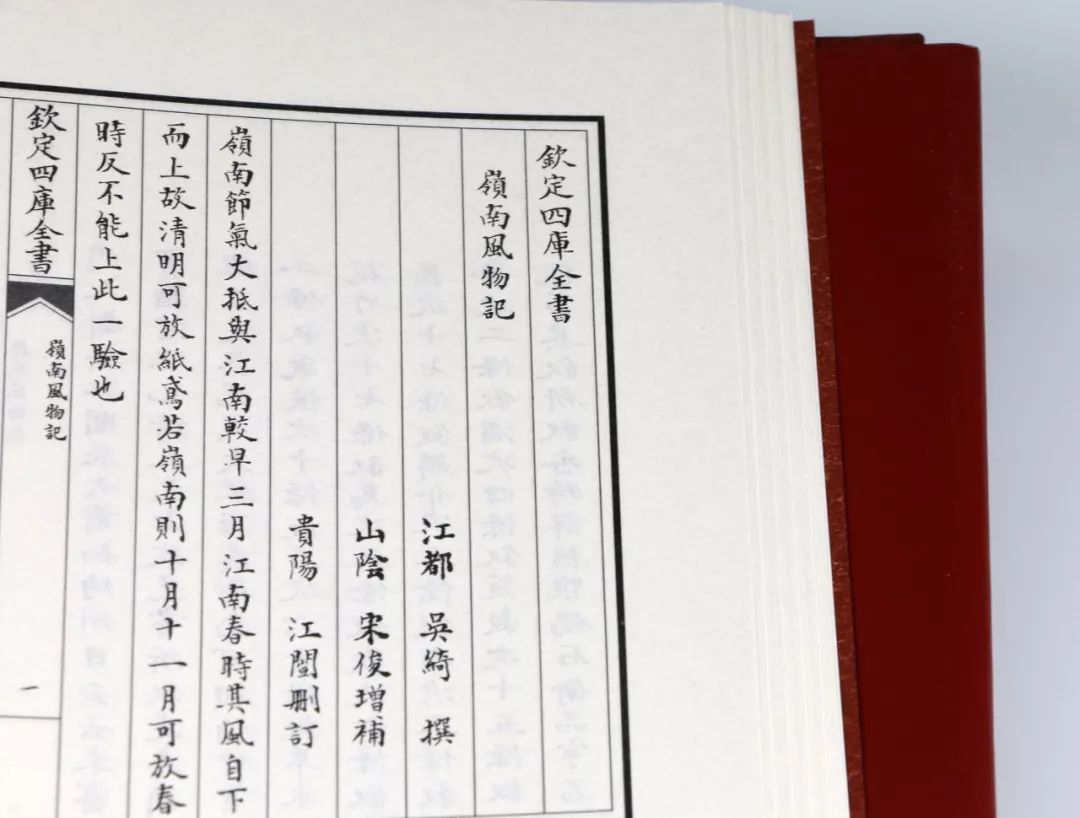 欽定四庫全書
嶺南風物記
江都 吳綺 撰
山陰 宋俊增補
貴陽 江闓刪訂
嶺南節氣大抵與江南較早三月江南春時其風自下
而上故清明可放紙鳶若嶺南則十月十一月可放春
時反不能上此一驗也
欽定四庫全書
嶺南風物記
一